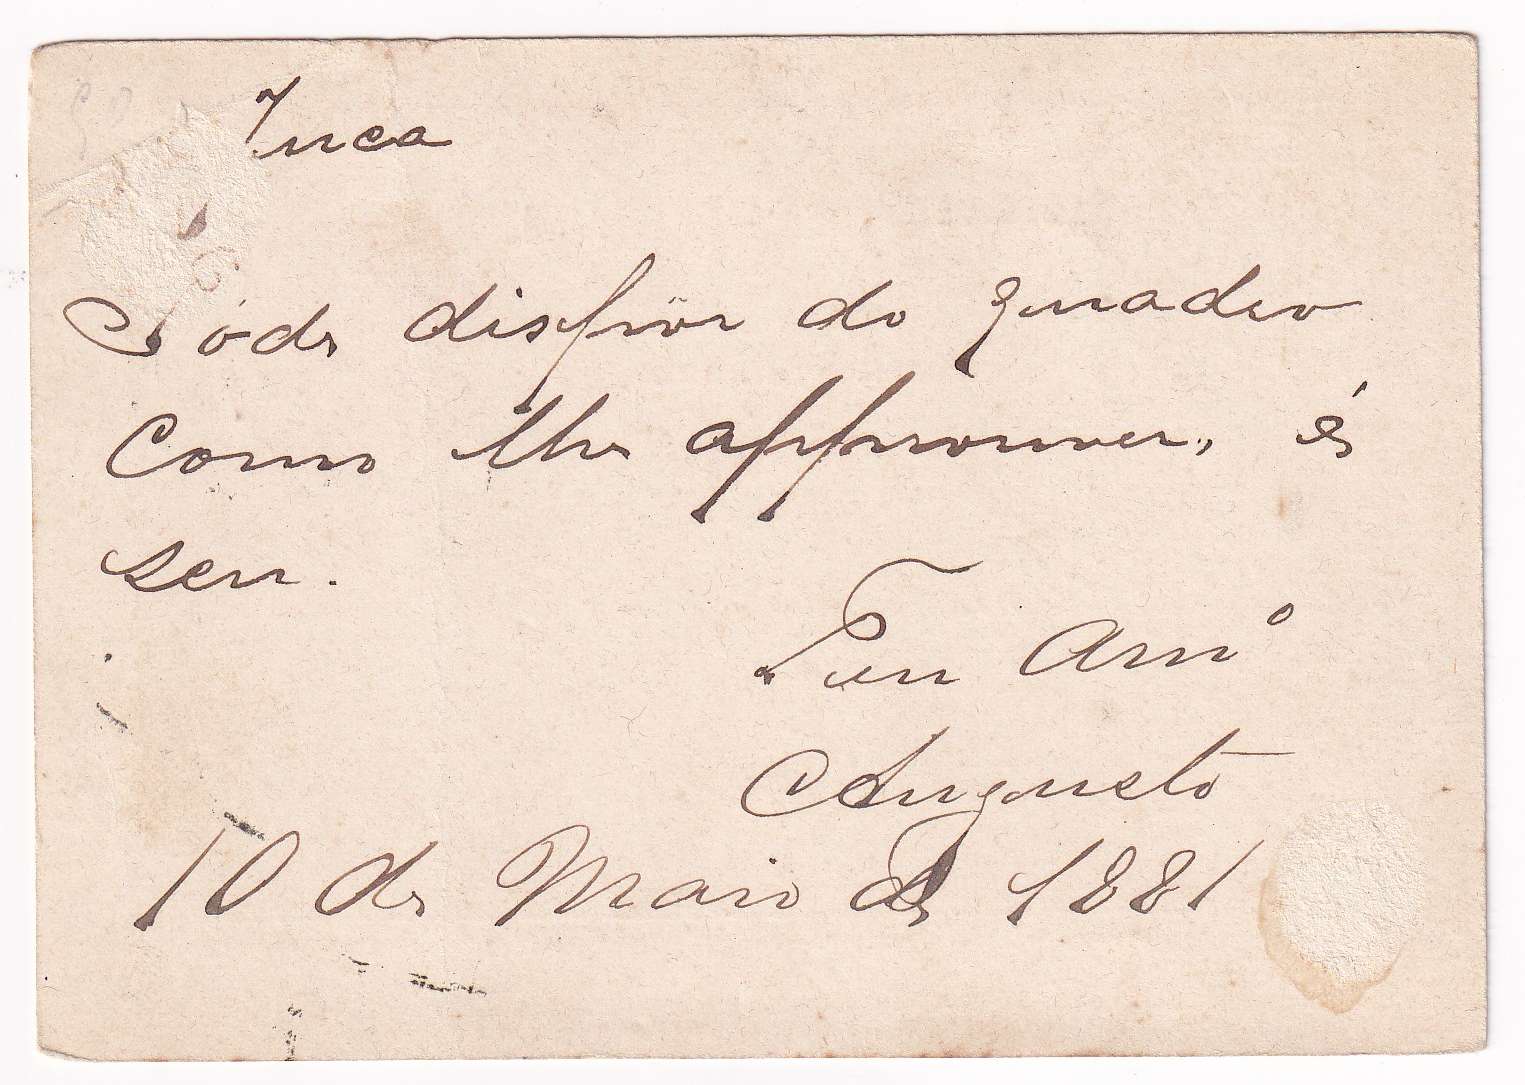 Juca
Póde dispôr do quadro
como lhe approuver, é
seu.
Seu Amo
Augusto
10 de Maio de 1881